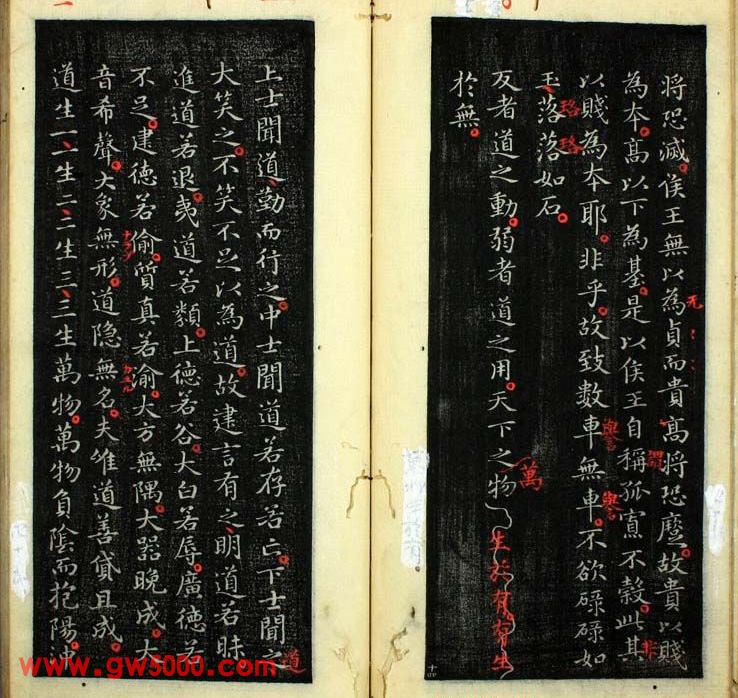 將恐滅侯王無以為貞而貴髙將恐蹷故貴以賤
无
為本髙以下為基是以侯王自稱孤寡不榖此其
謂
非
以賤為本耶非乎故致數車無車不欲碌碌如
譽
譽
玉落落如石
珞珞
反者道之動弱者道之用天下之物生於有有生
萬
於無
上士聞道勤而行之中士聞道若存若亡下士聞之
道
大笑之不笑不足以為道故建言有之明道若昧
進道若退夷道若纇上德若谷大白若辱廣德若
不足建德若偷質真若渝大方無隅大器晚成大
音希聲大象無形道隐無名夫惟道善貸且成
道生一一生二二生三三生萬物萬物負陰而抱陽沖
www.gw5000.com